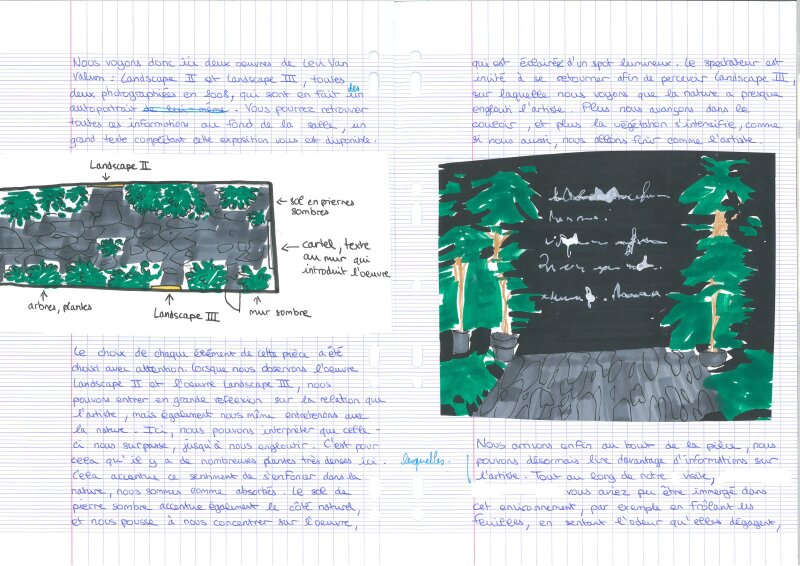 Nous voyons donc ici deux oeuvres de Levi Van
Valum : Landscape II et Landscape III, toutes
deux photographiées en 2008, qui sont en fait des
autoportrait de lui-même. Vous pourrez retrouver
toutes ces informations au fond de la salle, un
grand texte complétant cette exposition vous est disponible.
Landscape II
← sol en pierres
sombres
← cartel, texte
au mur qui
introduit l'oeuvre
arbres, plantes
Landscape III
mur sombre
Le choix de chaque élément de cette pièce a été
choisi avec attention. Lorsque nous observons l'oeuvre
Landscape II et l'oeuvre Landscape III, nous
pouvons entrer en grande reflexion sur la relation que
l'artiste, mais également nous même entretenons avec
la nature. Ici, nous pouvons interpréter que celle-
ci nous surpasse, jusqu'à nous engloutir. C'est pour
cela qu'il y a de nombreuses plantes très denses ici.
Cela accentue ce sentiment de s'enfoncer dans la
nature, nous sommes comme absorbés. Le sol de
pierre sombre accentue également le côté naturel,
et nous pousse à nous concentrer sur l'oeuvre,
lesquelles.
qui est éclairée d'un spot lumineux. Le spectateur est
invité à se retourner afin de percevoir Landscape III,
sur laquelle nous voyons que la nature a presque
englouti l'artiste. Plus nous avançons dans le
couloir, et plus la végétation s'intensifie, comme
si nous aussi, nous allions finir comme l'artiste.
Nous arrivons enfin au bout de la pièce, nous
pouvons désormais lire davantage d'informations sur
l'artiste. Tout au long de notre visite,
vous aviez pu être immergé dans
cet environnement, par exemple en frôlant les
feuilles, en sentant l'odeur qu'elles dégagent,